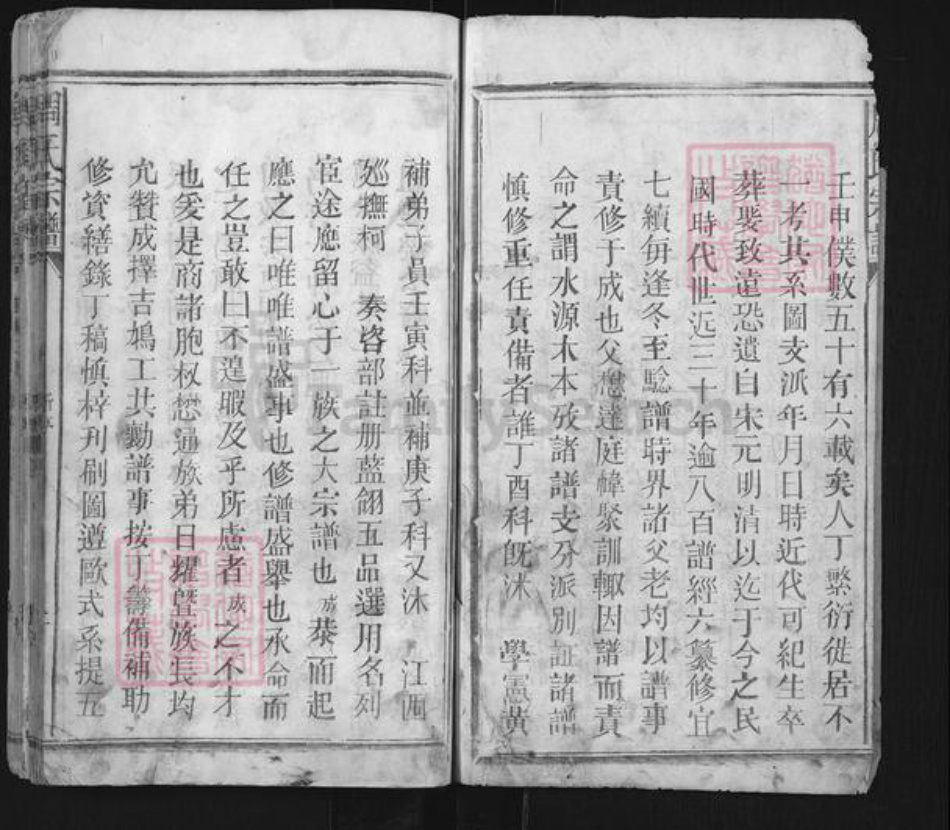 壬申僕數五十有六載矣人丁繁衍徙居不
一考其系圖支派年月日時近代可紀生卒
葬娶致遠恐遺自宋元明清以迄于今之民
國時代世近三十年逾八百譜經六纂修宜
七續每逢冬至驗譜時界諸父老均以譜事
責修于成也父懋達庭幃聚訓輙因譜而責
命之謂水源木本攷諸譜支分派別証諸譜
慎修重任責備者誰丁酉科旣沐 學憲黃
補弟子員壬寅科並補庚子科又沐 江西
廵撫柯 奏咨部註册藍翎五品選用名列
宦途應留心于一族之大宗譜也成恭而起
應之曰唯唯譜盛事也修譜盛舉也承命而
任之豈敢曰不遑暇及乎所慮者成之不才
也爰是商諸胞叔懋通族弟日耀曁族長均
允贊成擇吉鳩工共勷譜事按丁籌備補助
修資繕錄丁稿慎梓刋刷圖遵歐式系提五
氏宗譜
FamilySearch